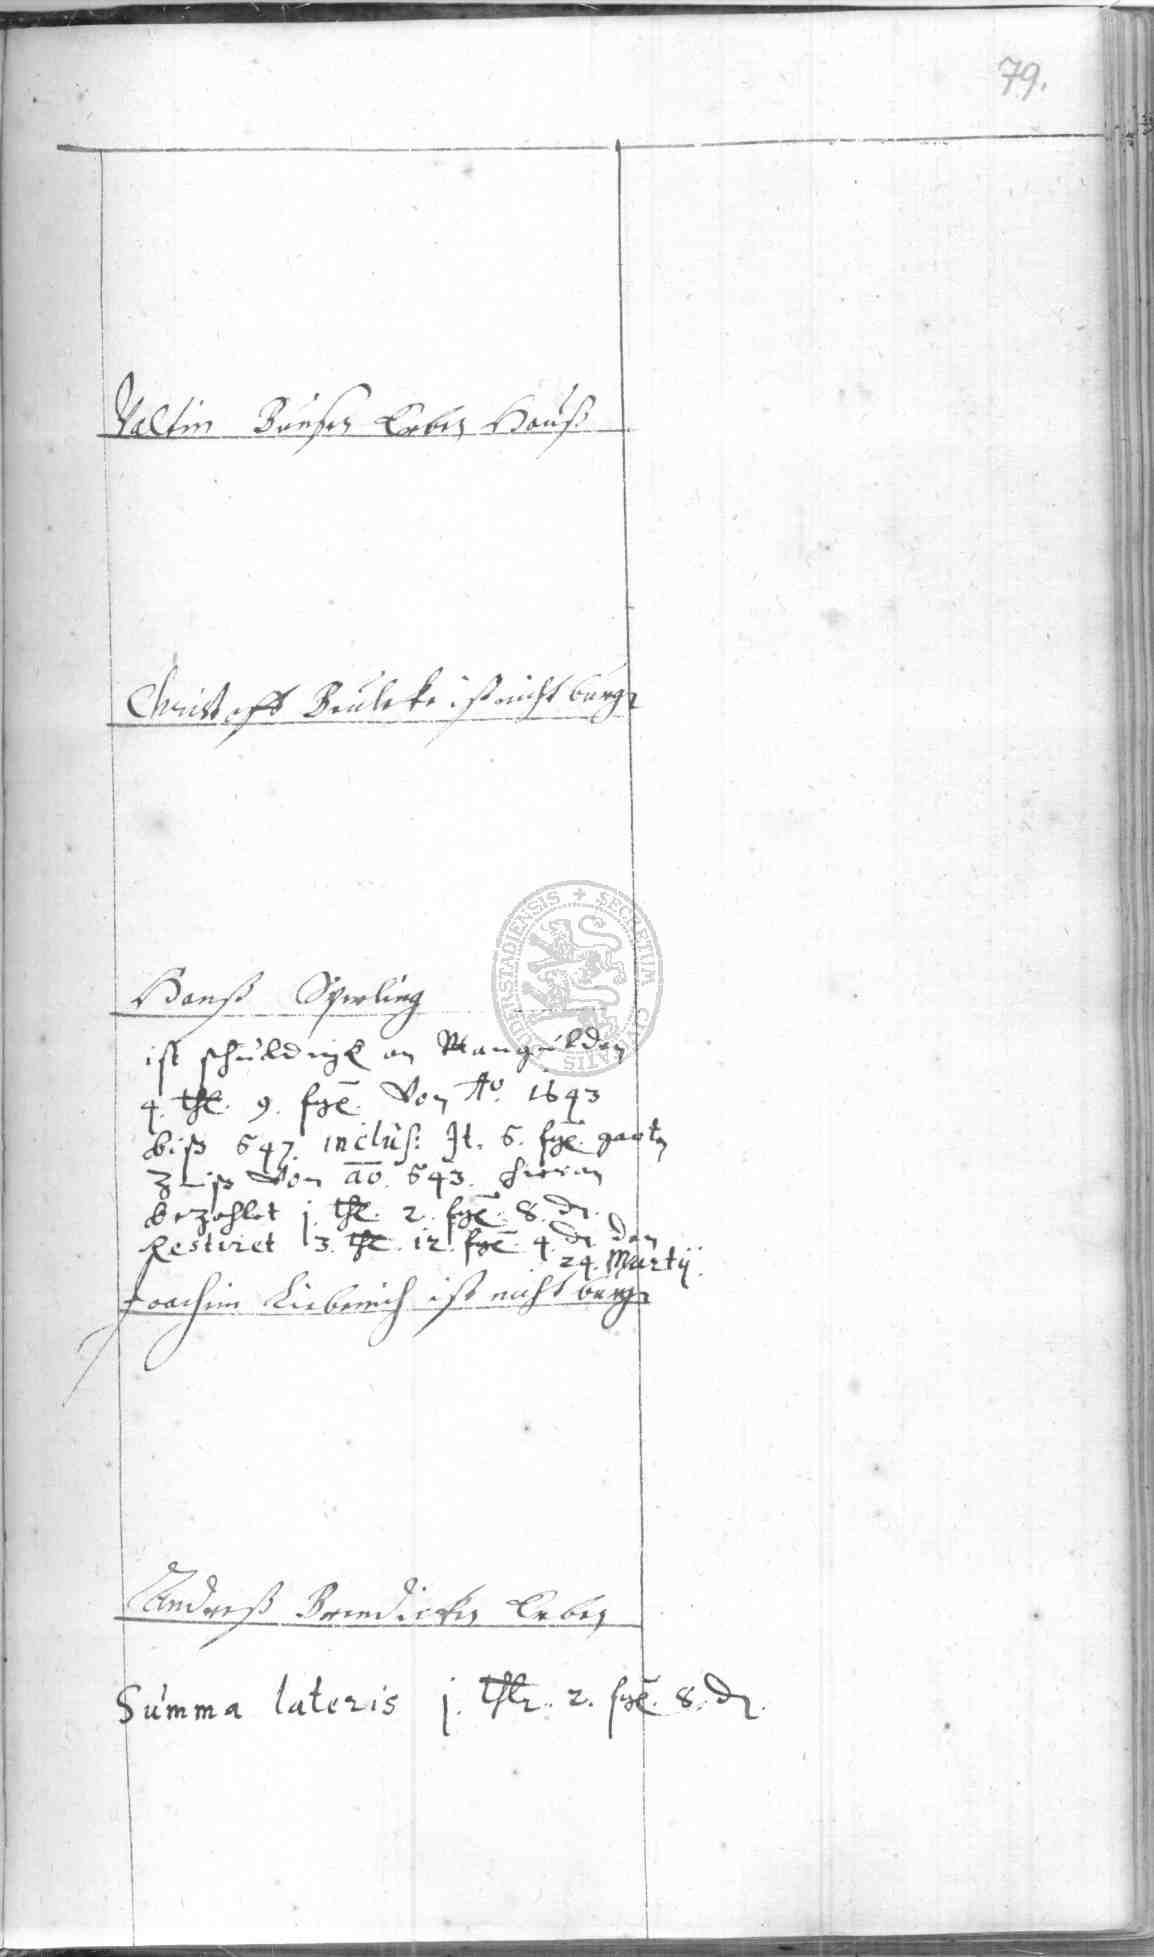 79.
Valtin Bünsen Erben Hauß
Christoff Beuleke ist nicht burger
Hanß Sperling
ist schuldigk an Mangulden
4. thl. 9. sgl. Von Ao. 1643
biß 647. inclus: It. 6. sgl. gartn
Zinß Von ao. 643. hieran
bezahlet j. thl. 2. sgl. 8. d.
Restiret 3. thl. 12. sgl. 4. d. den
24. Martij.
Joachim ist nicht burger
Andreß Brendicken Erben
Summa lateris j. thlr. 2. sgl. 8. d.
SECRETUM CIVITATIS DUDERSTADIENSIS